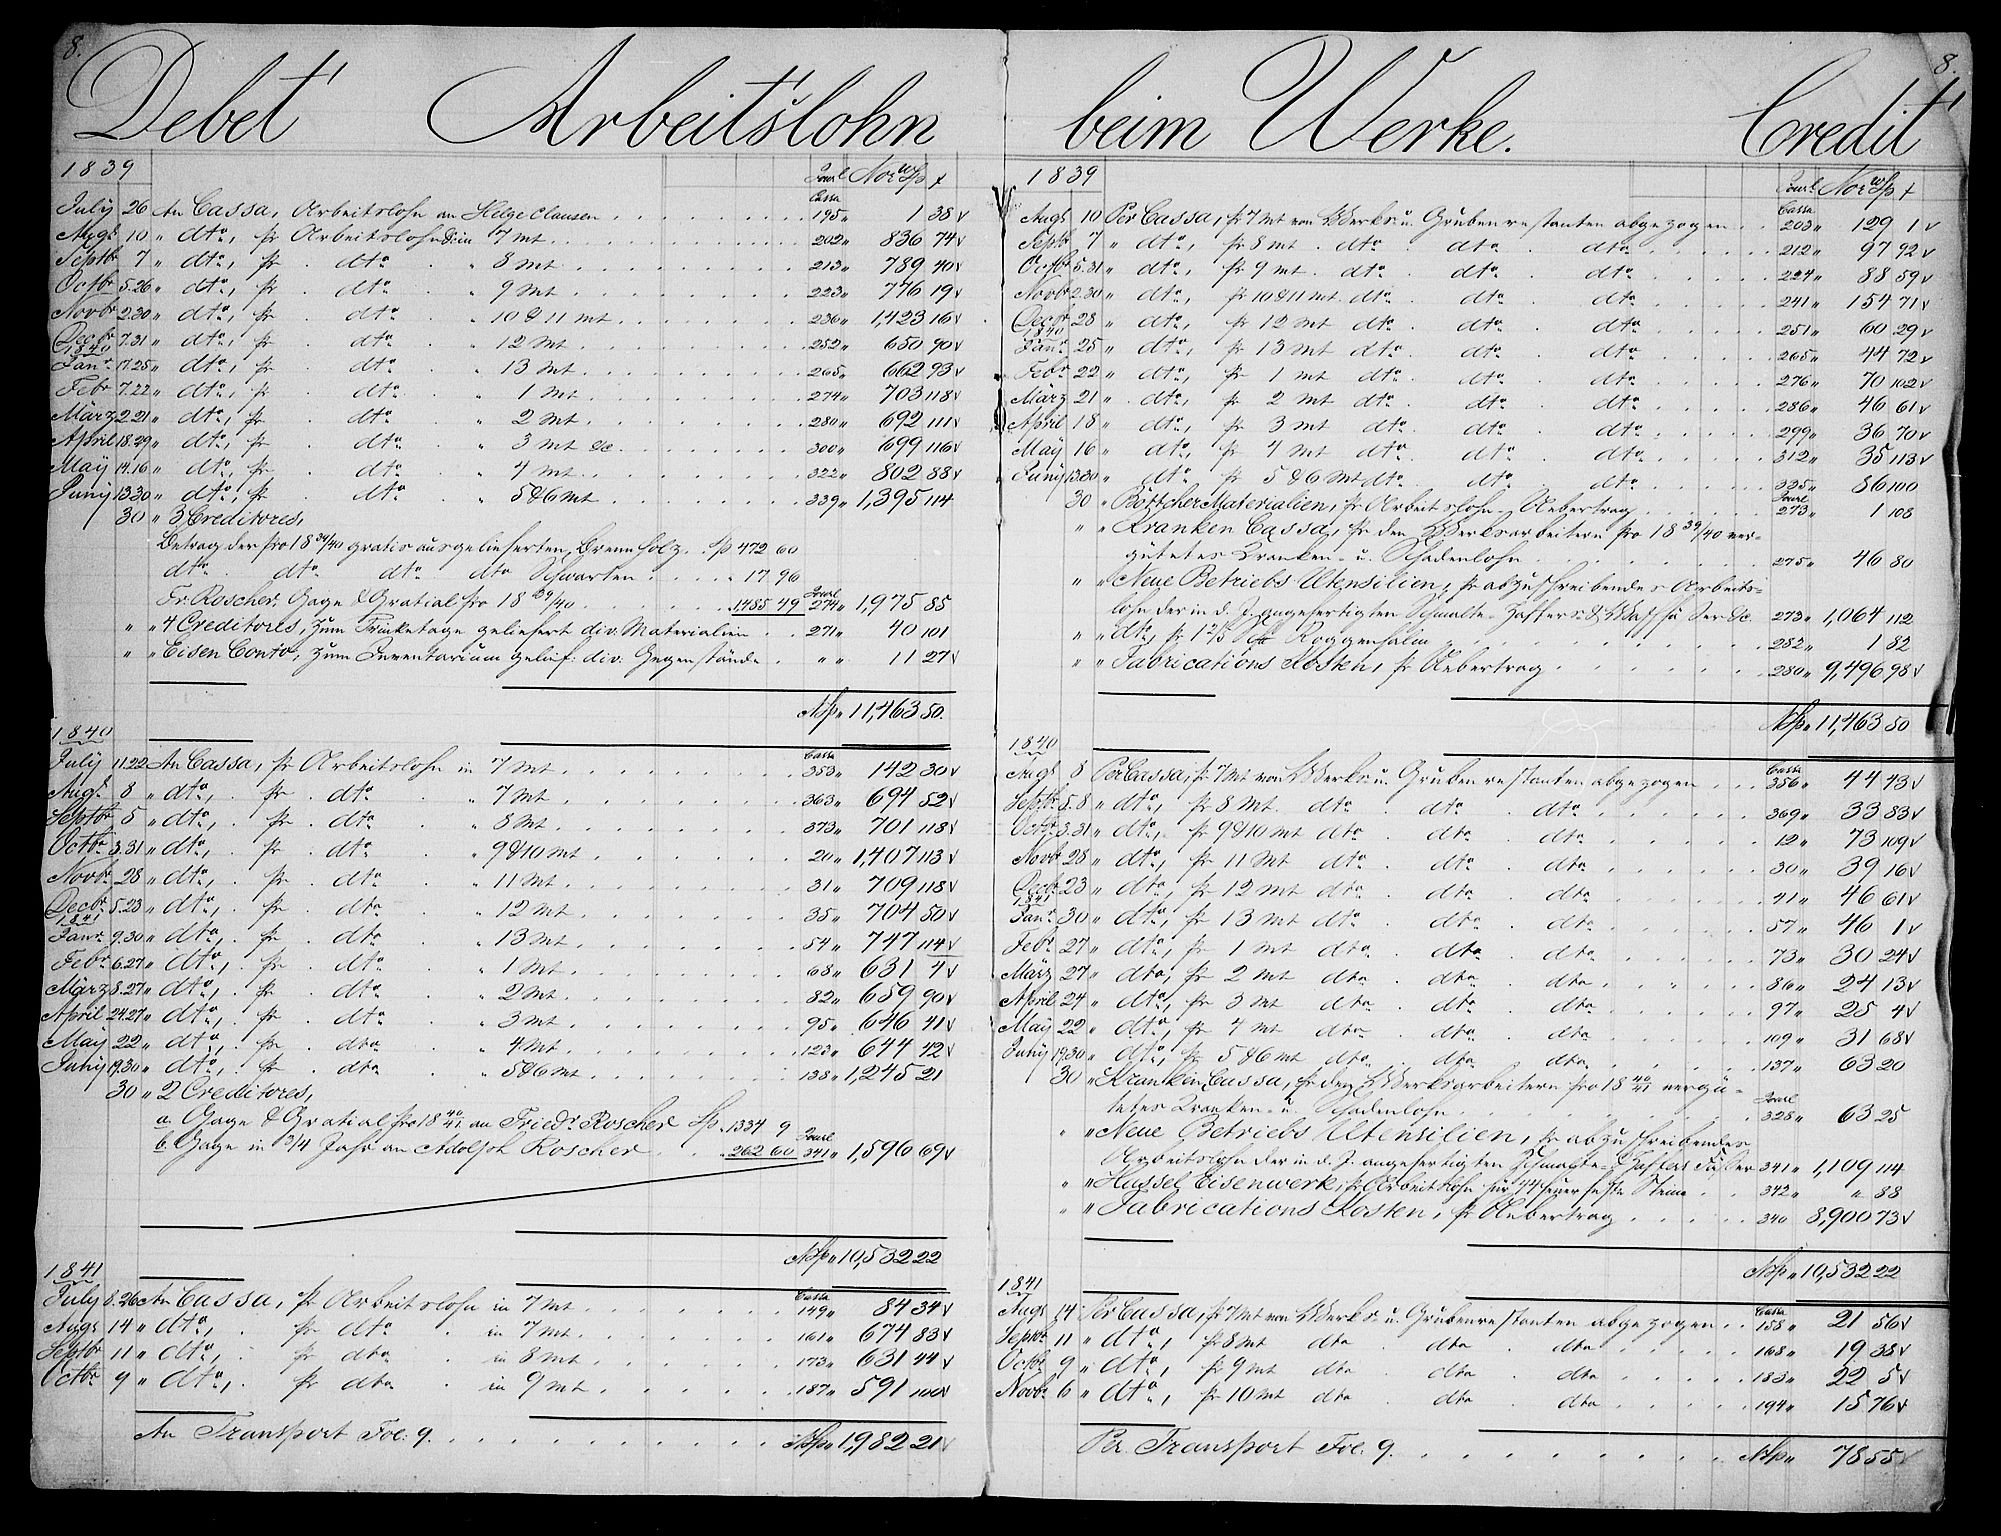 8.
Debet Arbeitslohn
1839 Jourl Norw Sp ƒ
July 26 An Cassa, Arbeitslohn an Helge Clausen Cassa 195 " 1 38
Augt 10 " dto, pr Arbeitslohn in 7 Mt. 202 " 836 74
Septbr 7 " dto, pr dto " 8 Mt. 213 " 789 40
Octbr 5.26 " dto, pr dto " 9 Mt 223 " 776 19
Novbr 2.30 " dto, pr dto " 10 & 11 Mt. 236 " 1,423 16
Decbr 7.31 " dto, pr dto " 12 Mt 252 " 650 90
1840
Janr 17.25 " dto, pr dto " 13 Mt 265 " 662 93
Febr 7.22 " dto, pr dto " 1 Mt 274 " 703 118
März 2.21 " dto, pr dto " 2 Mt. 280 " 692 111
April 18.29 " dto, pr dto " 3 Mt &c. 300 " 699 116
Maÿ 14.16 " dto, pr dto " 4 Mt. 322 " 802 88
Junÿ 13.30 " dto, pr dto " 5 & 6 Mt 339 " 1,395 114
30 " 3 Creditores,
Betrag der pro 18 39/40 gratis ausgelieferten Brennholz. Sp 472 60
dto dto dto dto Schwarten " 17 96
Fr. Roscher, Gage & Gratial pro 18 39/40 " 1485 49 Jourl 274 " 1,975 85
" " 4 Creditores, zum Trinketage geliefert div. Materialien 271 " 40 101
" " Eisen Conto, zum Inventarium gelief. div. Gegenstände " " 11 27
NSp " 11,463 50.
1840
July 11.22 An Cassa, pr Arbeitslohn in 7 Mt Cassa 353 " 142 30
Augt 8 " dto, pr dto " 7 Mt 363 " 694 52
Septbr 5 " dto, pr dto " 8 Mt 373 " 701 118
Octbr 3.31 " dto, pr dto " 9 & 10 Mt 20 " 1,407 113
Novbr 28 " dto, pr dto " 11 Mt 31 " 709 118
Decbr 5.23 " dto, pr dto " 12 Mt 35 " 704 50
1841
Janr 9.30 " dto, pr dto " 13 Mt 54 " 747 114
Febr 6.27 " dto, pr dto " 1 Mt 68 " 631 4
März 8.27 " dto, pr dto " 2 Mt 82 " 659 90
April 24.27 " dto, pr dto " 3 Mt 95 " 646 41
Maÿ 22 " dto, pr dto " 4 Mt 123 " 644 42
Junÿ 19.30 " dto, pr dto " 5 & 6 Mt 138 " 1,245 21
30 " 2 Creditores,
a. Gage & Gratial pro 18 40/41 an Friedr. Roscher Sp. 1334 9
b. Gage in 3/4 Jahr an Adolph Roscher " 262 60 Jourl 341 " 1,596 69
NSp " 10,532 22
1841
July 8.26 An Cassa, pr Arbeitslohn in 7 Mt Cassa 149 " 84 34
Augt 14 " dto, pr dto in 7 Mt 161 " 674 83
Septbr 11 " dto, pr dto in 8 Mt 173 " 631 44
Octbr 9 " dto, pr dto in 9 Mt 187 " 591 100
An Transport Fol: 9. NSp " 1,982 21
8.
beim Werke. Credit
1839 Jourl Norw Sp ƒ
Augt 10 Per Cassa, pr 7 Mt von Werks- u. Grubenrestanten abgezogen Cassa 203 " 129 1
Septbr 7 " dto, pr 8 Mt dto dto dto 212 " 97 92
Octbr 5.31 " dto, pr 9 Mt dto dto dto 224 " 88 59
Novbr 2.30 " dto, pr 10 & 11 Mt dto dto dto 241 " 154 71
Decbr 28 " dto, pr 12 Mt dto dto dto 251 " 60 29
1840
Janr 25 " dto, pr 13 Mt dto dto dto 265 " 44 72
Febr 22 " dto, pr 1 Mt dto dto dto 276 " 70 102
März 21 " dto, pr 2 Mt dto dto dto 286 " 46 61
April 18 " dto, pr 3 Mt dto dto dto 299 " 36 70
Maÿ 16 " dto, pr 4 Mt dto dto dto 312 " 35 113
Junÿ 13.30 " dto, pr 5 & 6 Mt dto dto dto 325 " 86 100
30 " Böttcher Materialien, pr Arbeitslohn-Uebertrag Jourl 273 " 1 108
" " Kranken Cassa, pr den Werksarbeitern pro 18 39/40 ver-
gütetes Kranken- u. Schadenlohn 275 " 46 80
" " Neue Betriebs Utensilien, pr abzuschreibendes Arbeits-
lohn der in d. J. angefertigten Schmalte- Zaffer- & &c. 273 " 1,064 112
" " dto, pr 1 2/3 Roggenhalm 282 " 1 82
" " Fabrications Kosten, pr Uebertrag 280 " 9,496 98
NSp " 11,463 50
1840
Augt 8 Per Cassa, pr 7 Mt von Werks- u. Grubenrestanten abgezogen Cassa 356 " 44 43
Septbr 5.8 " dto, pr 8 Mt dto dto dto 369 " 33 83
Octbr 3.31 " dto, pr 9 & 10 Mt dto dto dto 12 " 73 109
Novbr 28 " dto, pr 11 Mt dto dto dto 30 " 39 16
Decbr 23 " dto, pr 12 Mt dto dto dto 41 " 46 61
1841
Janr 30 " dto, pr 13 Mt dto dto dto 57 " 46 1
Febr 27 " dto, pr 1 Mt dto dto dto 73 " 30 24
März 27 " dto, pr 2 Mt dto dto dto 86 " 24 13
April 24 " dto, pr 3 Mt dto dto dto 97 " 25 4
Maÿ 22 " dto, pr 4 Mt dto dto dto 109 " 31 68
Junÿ 19.30 " dto, pr 5 & 6 Mt dto dto dto 137 " 63 20
30 " Kranken Cassa, pr den Werksarbeitern pro 18 40/41 vergü-
tetes Kranken- u. Schadenlohn Jourl 328 " 63 25
" " Neue Betriebs Utensilien, pr abzuschreibendes
Arbeitslohn der in d. J. angefertigten Schmalte- & Zaffer Fässer 341 " 1,109 114
" " Hassel Eisenwerk, pr Arbeitslohn für 44 feuerfeste Steine 342 " " 88
" " Fabrications Kosten, pr Uebertrag 340 8,900 73
NSp " 10,532 22
1841
Augt 14 Per Cassa, pr 7 Mt von Werks- u. Grubenrestanten abgezogen Cassa 158 " 21 56
Septbr 11 " dto, pr 8 Mt dto dto dto 168 " 19 38
Octbr 9 " dto, pr 9 Mt dto dto dto 183 " 22 5
Novbr 6 " dto, pr 10 Mt dto dto dto 194 " 15 76
Per Transport Fol: 9. NSp " 78 55